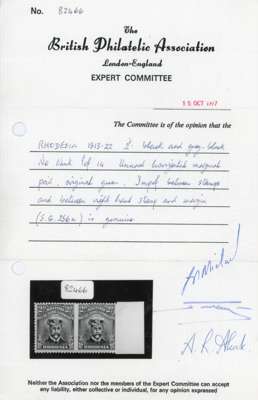 No. 82466
The
British Philatelic Association
London-England
EXPERT COMMITTEE
15 OCT 1977
The Committee is of the opinion that the
RHODESIA 1913-22 1d. black and grey-black
No Wmk Pf 14 Unused horizontal marginal
pair, original gum. Imperf between stamps
and between right hand stamp and margin
is genuine.
82466
A. R.
Neither the Association nor the members of the Expert Committee can accept
any liability, either collective or individual, for any opinion expressed